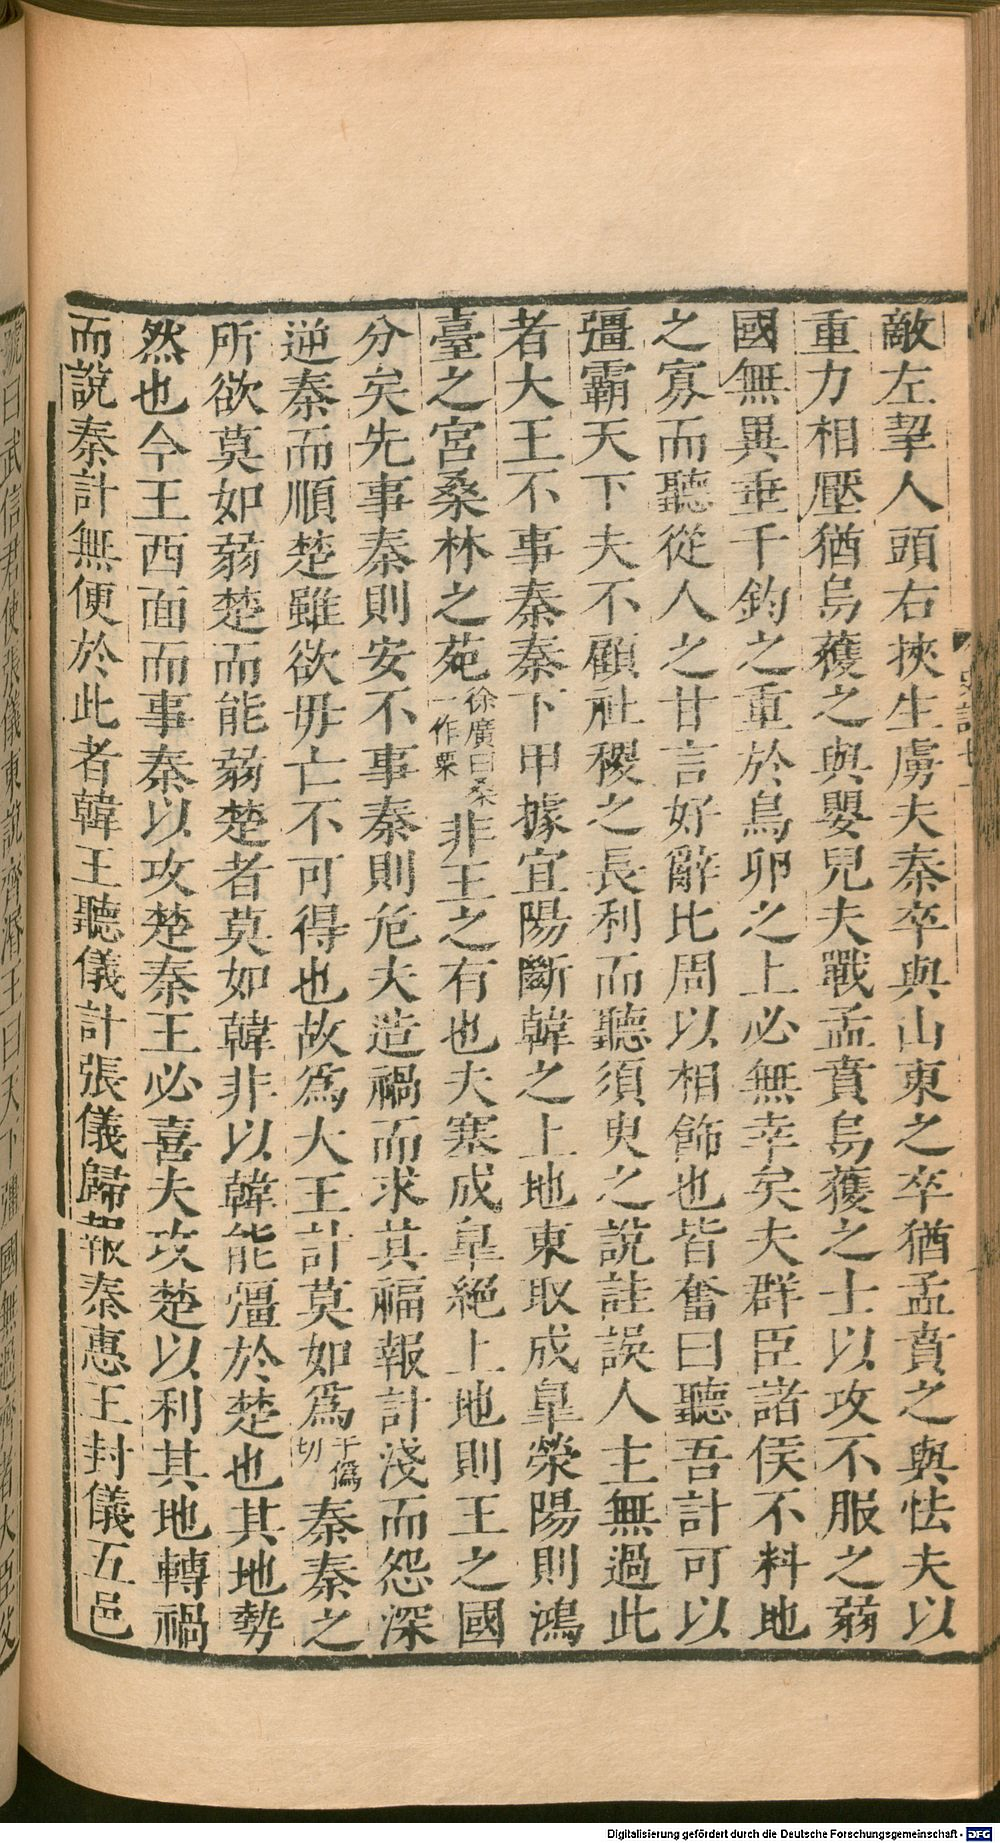 敵左挈人頭右挾生虜夫秦卒與山東之卒猶孟賁之與怯夫以
重力相壓猶烏獲之與嬰兒夫戰孟賁烏獲之士以攻不服之弱
國無異垂千鈞之重於鳥卵之上必無幸矣夫群臣諸侯不料地
之寡而聽從人之甘言好辭比周以相飾也皆奮曰聽吾計可以
彊霸天下夫不顧社稷之長利而聽須臾之說詿誤人主無過此
者大王不事秦秦下甲據宜陽斷韓之上地東取成皐滎陽則鴻
臺之宮桑林之苑徐廣曰桑一作栗非王之有也夫塞成皐絕上地則王之國
分矣先事秦則安不事秦則危夫造禍而求其福報計淺而怨深
逆秦而順楚雖欲毋亡不可得也故爲大王計莫如爲于僞切秦秦之
所欲莫如弱楚而能弱楚者莫如韓非以韓能彊於楚也其地勢
然也今王西面而事秦以攻楚秦王必喜夫攻楚以利其地轉禍
而說秦計無便於此者韓王聽儀計張儀歸報秦惠王封儀五邑
號曰武信君使張儀東說齊湣王曰天下彊國無過齊者大臣父
Digitalisierung gefördert durch die Deutsche Forschungsgemeinschaft - DFG